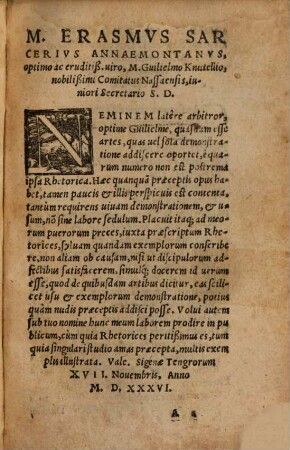 M. ERASMVS SAR
CERIVS ANNAEMONTANVS,
optimo ac eruditiß. uiro, M. Guilielmo Knutellio,
nobilißimi Comitatus Nassaensis, iu-
niori Secretario S. D.
NEMINEM latêre arbitror,
optime Guilielme, quasdam esse
artes, quas uel sola demonstra-
tione addiscere oportet, è qua-
rum numero non est postrema
ipsa Rhetorica. Haec quanquã praeceptis opus ha-
bet, tamen paucis et illis perspicuis est contenta,
tantùm requirens uiuam demonstrationem, & u-
sum, nõ sine labore sedulum. Placuit itaq; ad meo-
rum puerorum preces, iuxta praescriptum Rhe-
torices, syluam quandam exemplorum conscribe
re, non aliam ob causam, nisi ut discipulorum ad-
fectibus satisfacerem, simulq; docerem id uerum
esse, quod de quibusdam artibus dicitur, eas scili-
cet usu & exemplorum demonstratione, potius
quàm nudis praeceptis addisci posse. Volui autem
sub tuo nomine hunc meum laborem prodire in pu
blicum, cùm quia Rhetorices peritißimus es, tum
quia singulari studio amas praecepta, multis exem
plis illustrata. Vale. Sigenae Tengrorum
XVII. Nouembris, Anno
M. D. XXXVI.
A 2